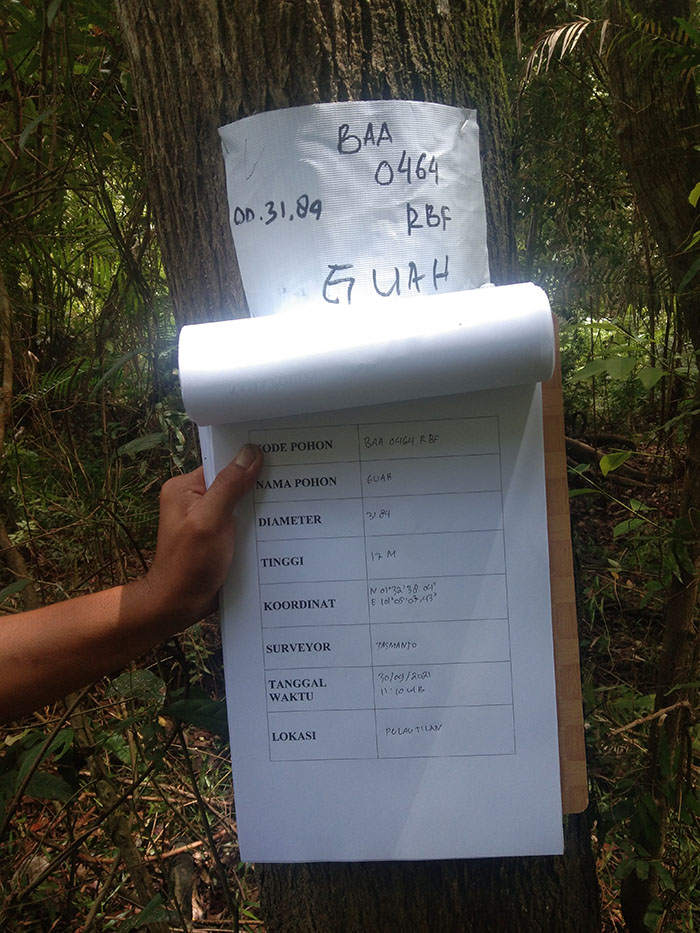 BAA
0464
DD.31.89
RBF
GUAH
KODE POHON BAA 0464 RBF
NAMA POHON GUAH
DIAMETER 31.89
TINGGI 17 M
KOORDINAT N 01°32'38.04"
E 101°05'07,43"
SURVEYOR TASMANTO
TANGGAL WAKTU 30/09/2021
11:10 WIB
LOKASI PULAU TILAN